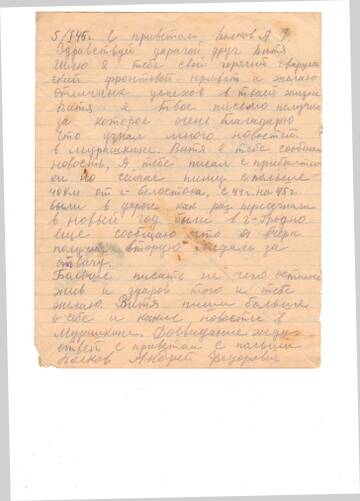 5/I 45г. С приветом Быков А. Ф.
Здравствуй дорогой друг Витя
Шлю я тебе свой горячий
ский фронтовой привет и желаю
отличных успехов в твоей жизне
Витя я твое письмо получил
за которое очень благодарю
что узнал много новостей
в Мурашкине. Витя я тебе сообщаю
новость, я тебе писал с прибалти
ки но сичас пишу с польше
40км от г-Белостока, с 44г. на 45г.
были в дороге как раз переезжали
в новый год были в г-Гродно
Еще сообщаю что я вчера
получил вторую медаль за
отвагу.
Больше писать не чего остаюсь
жив и здаров того и тебе
желаю. Витя пиши больше
о себе и какие новости в
Мурашкине. Досвидание жду
ответ с приветом с польши
Быков Андрей Федорович